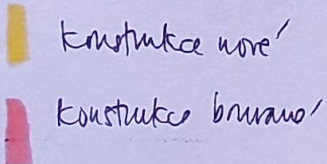 konstrukce nové
konstrukce bourané